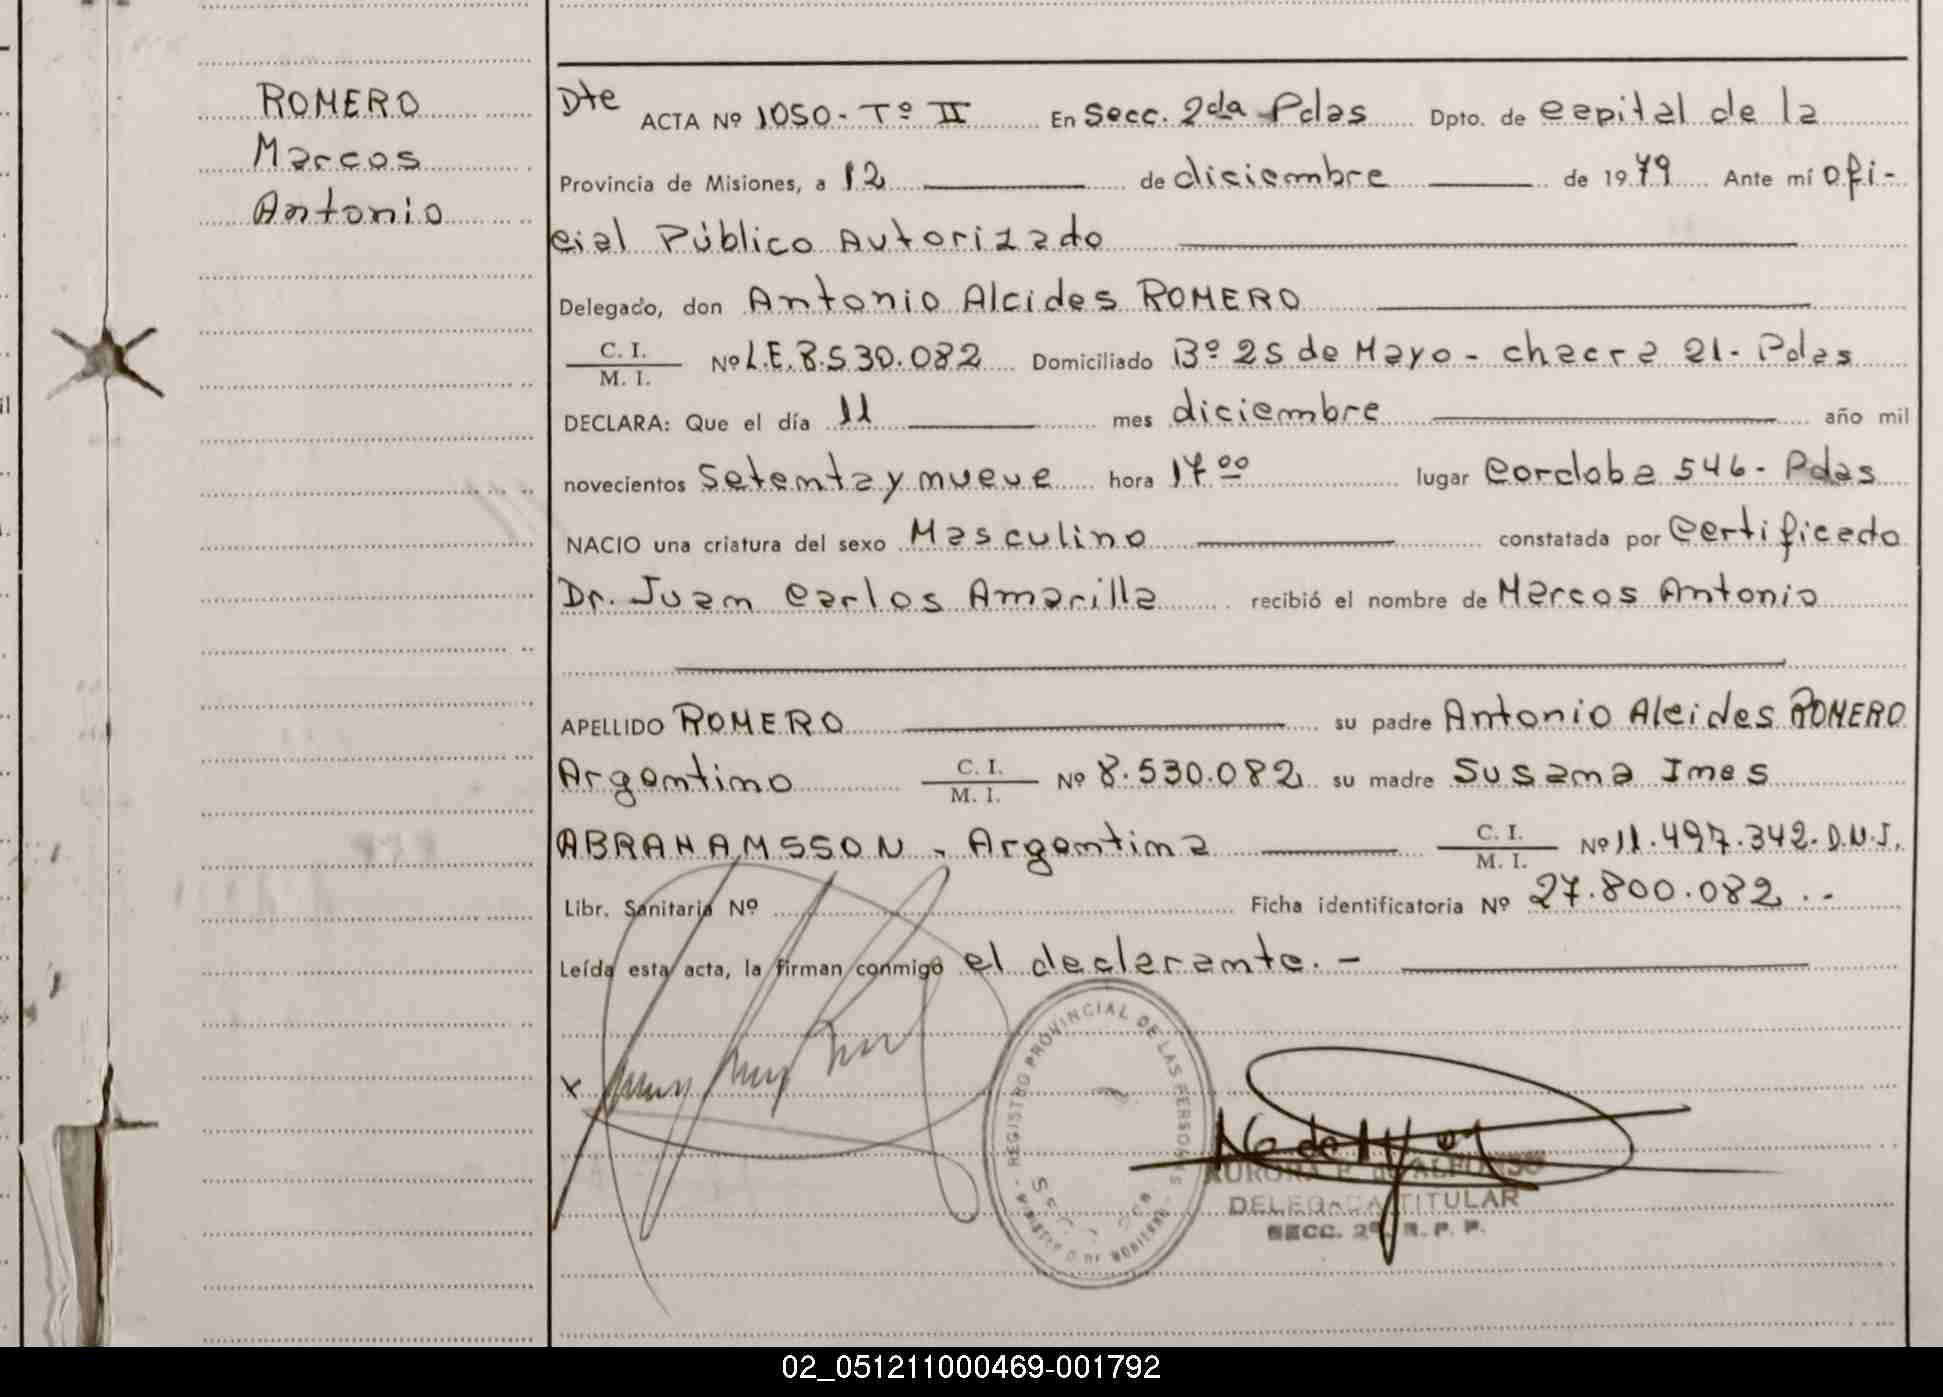 ROMERO
Marcos
Antonio
Dte ACTA Nº 1050 - Tº II En Secc. 2da Pdas Dpto. de capital de la
Provincia de Misiones, a 12 de diciembre de 1979 Ante mí ofi-
cial Público Autorizado
Delegado, don Antonio Alcides ROMERO
C. I.
M. I. Nº L.E. 8.530.082 Domiciliado Bº 25 de Mayo - chacra 21 - Pdas
DECLARA: Que el día 11 mes diciembre año mil
novecientos setenta y nueve hora 17 00 lugar Cordoba 546 - Pdas
NACIO una criatura del sexo Masculino constatada por Certificado
Dr. Juan Carlos Amarilla recibió el nombre de Marcos Antonio
APELLIDO ROMERO su padre Antonio Alcides ROMERO
Argentino C. I.
M. I. Nº 8.530.082 su madre Susana Ines
ABRAHAMSSON - Argentina C. I.
M. I. Nº 11.497.342 - D.N.I.
Libr. Sanitaria Nº Ficha identificatoria Nº 27.800.082 . -
Leída esta acta, la firman conmigo el declarante. -
x
REGISTRO PROVINCIAL DE LAS PERSONAS
MINISTERIO DE GOBIERNO
AURORA de ALFONSO
DELEGADA TITULAR
SECC. 2ª R. P. P.
02_051211000469-001792